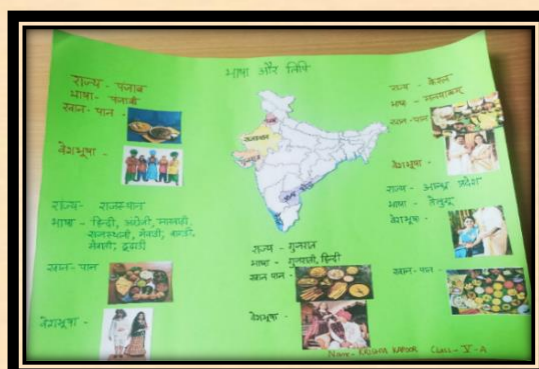 भाषा और लिपि
राज्य - पंजाब
भाषा - पंजाबी
खान - पान -
वेशभूषा -
राज्य - राजस्थान
भाषा - हिन्दी, अंग्रेजी, मारवाड़ी,
राजस्थानी, मेवाड़ी,
खान - पान
वेशभूषा -
राज्य - गुजरात
भाषा - गुजराती, हिन्दी
खान पान -
वेशभूषा -
राज्य - केरल
भाषा - मलयालम
खान - पान -
वेशभूषा -
राज्य - आन्ध्र प्रदेश
भाषा - तेलुगू
वेशभूषा -
खान - पान -
Name - KRISHYA KAPOOR Class - V - A